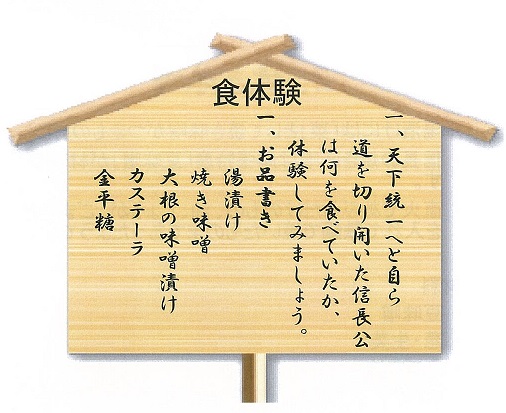 食体験
一、天下統一へと自ら
道を切り開いた信長公
は何を食べていたか、
体験してみましょう。
一、お品書き
湯漬け
焼き味噌
大根の味噌漬け
カステーラ
金平糖